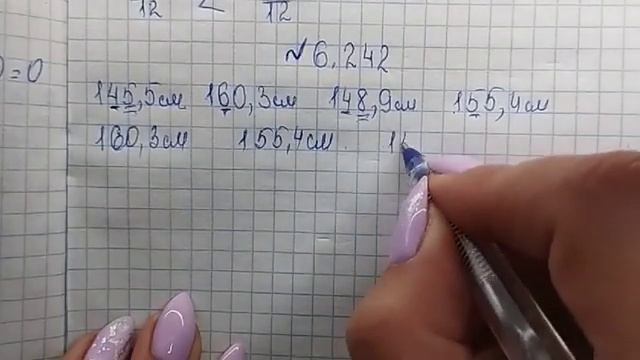 12 < 12
№6.242
0=0
145,5см 160,3см 148,9см 155,4см
160,3см 155,4см 14